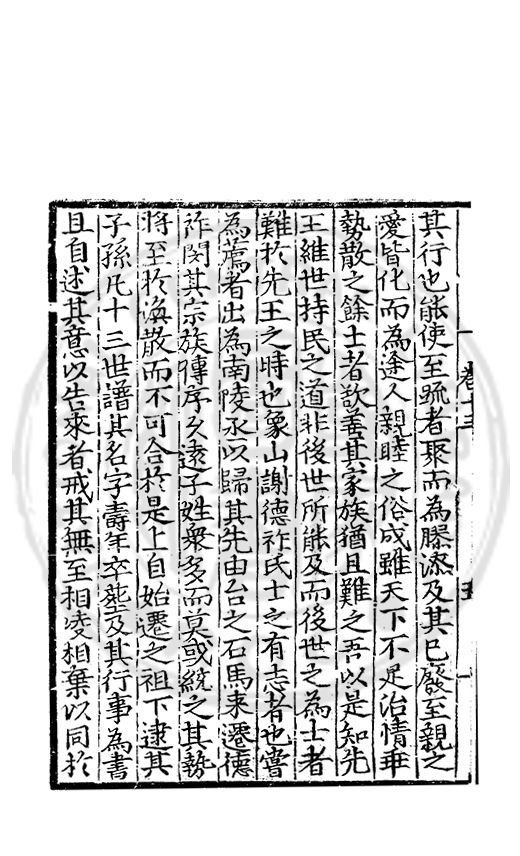 其行也能使至疏者聚而為膠漆及其已廢至親之
愛皆化而為途人親睦之俗成雖天下不足治情乖
勢散之餘士者欲善其家族猶且難之吾以是知先
王維世持民之道非後世所能及而後世之為士者
難於先王之時也象山謝德祚氏士之有志者也嘗
為薦者出為南陵丞以歸其先由台之石馬来遷德
祚閔其宗族傳序久遠子姓衆多而莫或統之其勢
将至於渙散而不可合於是上自始遷之祖下逮其
子孫凡十三世譜其名字壽年卒塟及其行事為書
且自述其意以告来者戒其無至相凌相棄以同於
卷十三